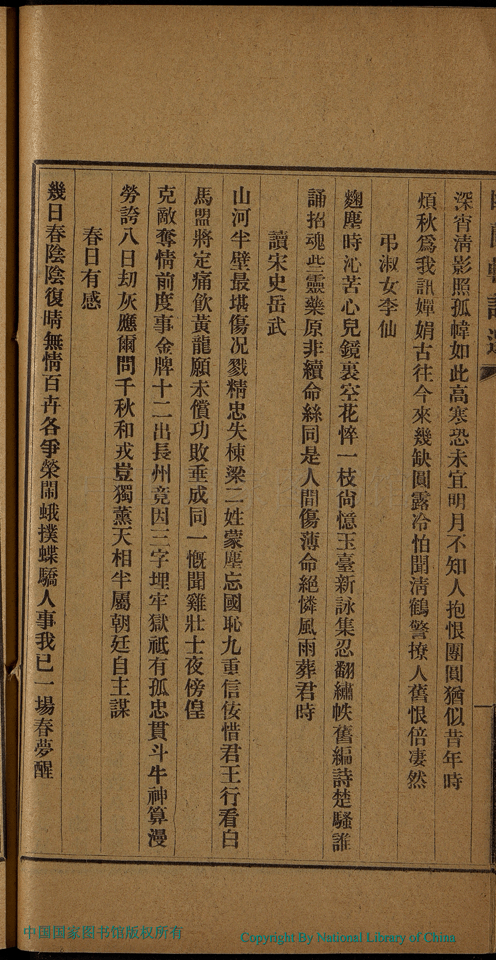 深宵清影照孤幃如此高寒恐未宜明月不知人抱恨團圓猶似昔年時
煩秋爲我訊嬋娟古往今來幾缺圓露冷怕聞清鶴警撩人舊恨倍凄然
弔淑女李仙
麹塵時沁苦心兒鏡裏空花悴一枝尙憶玉臺新詠集忍翻繡帙舊編詩楚騷誰
誦招魂些靈藥原非續命絲同是人間傷薄命絕憐風雨葬君時
讀宋史岳武
山河半壁最堪傷况戮精忠失棟梁二姓蒙塵忘國恥九重信佞惜君王行看白
馬盟將定痛飮黃龍願未償功敗垂成同一慨聞雞壯士夜傍偟
克敵奪情前度事金牌十二出長州竟因三字埋牢獄祇有孤忠貫斗牛神算漫
勞誇八日刧灰應爾問千秋和戎豈獨薰天相半屬朝廷自主謀
春日有感
幾日春陰陰復晴無情百卉各爭榮鬧蛾撲蝶驕人事我已一塲春夢醒
中国国家图书馆版权所有
Copyright By National Library of China